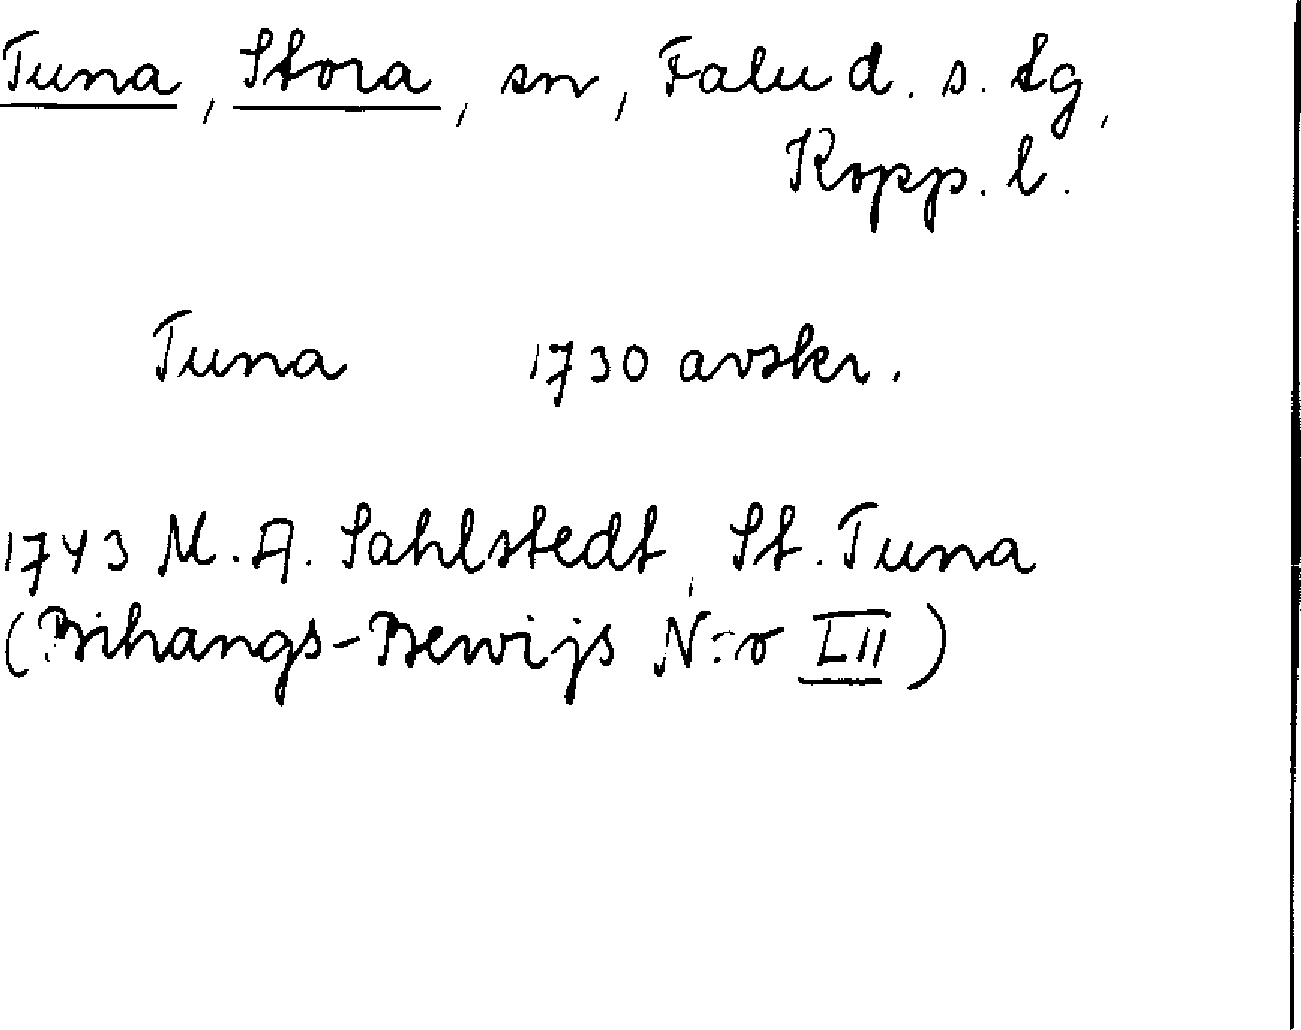 Tuna, Stora, sn, Falu d. s. tg,
Kopp. l.
Tuna 1730 avskr.
1743 M. A. Sahlstedt, St. Tuna
(Bihangs-Bewijs N:o LII)